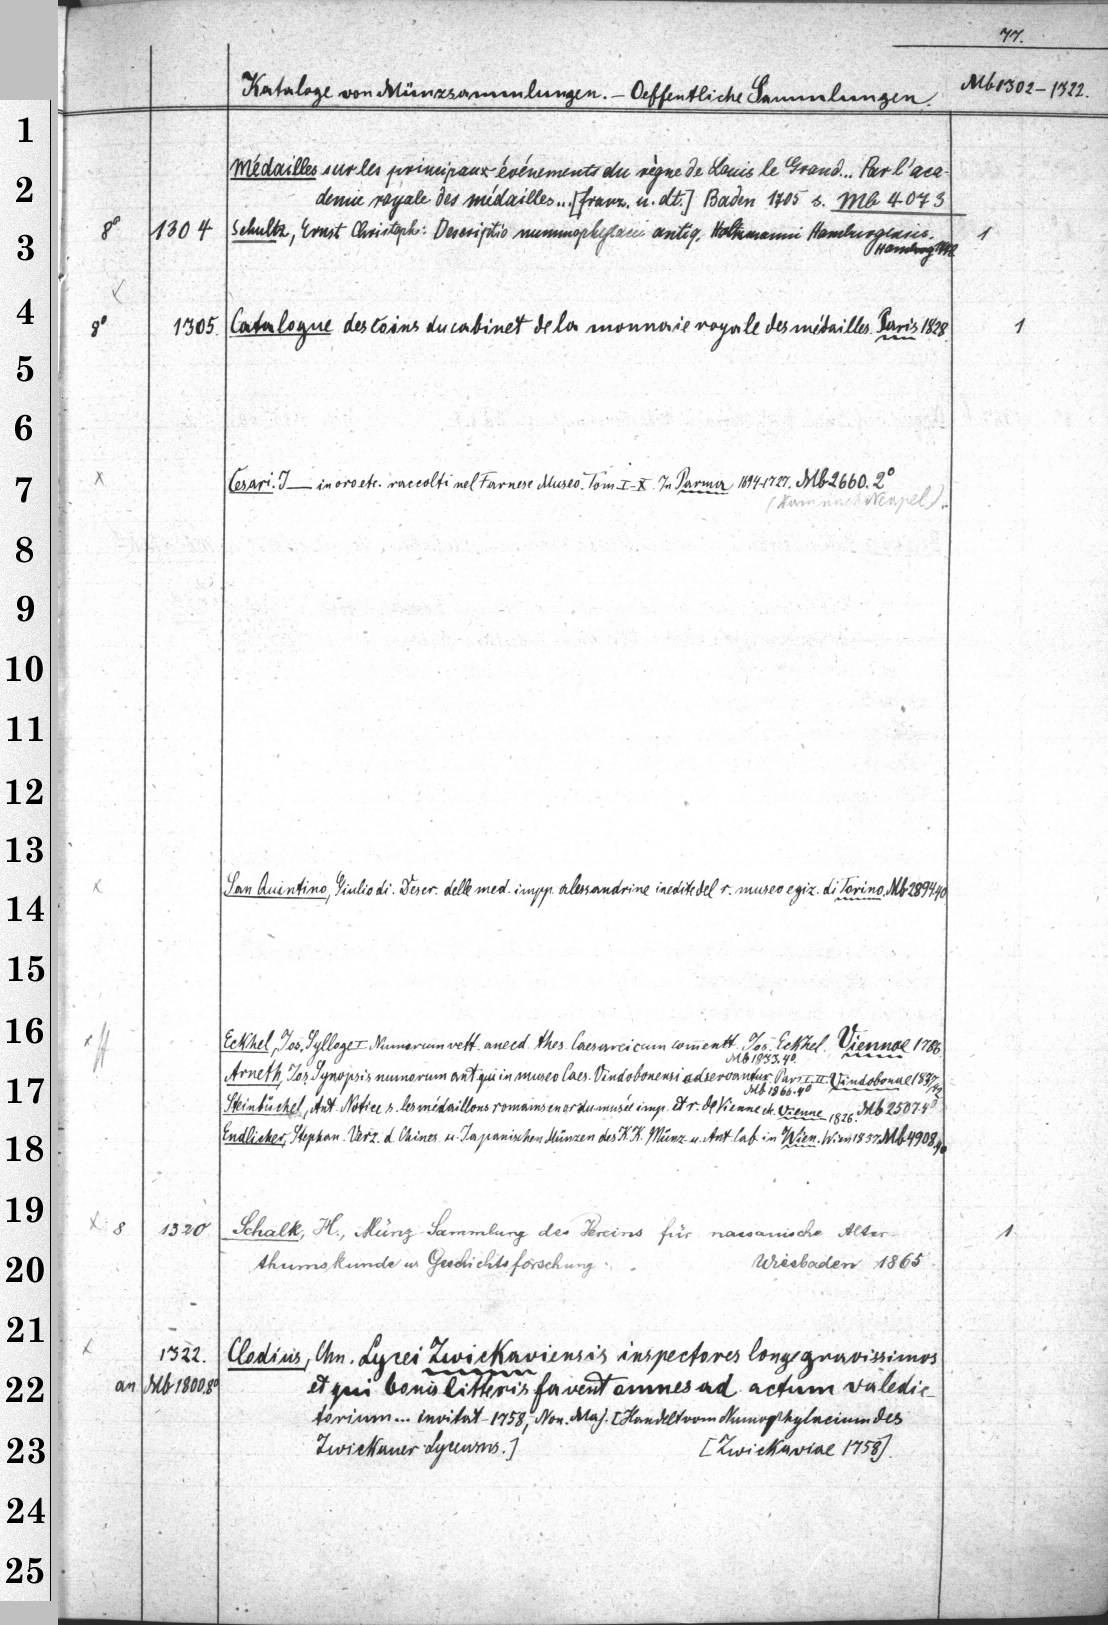 77.
Kataloge von Münzsammlungen. – Oeffentliche Sammlungen. Mb 1302–1322.
1
2
3
4
5
6
7
8
9
10
11
12
13
14
15
16
17
18
19
20
21
22
23
24
25
Médailles sur les principaux événements du règne de Louis le Grand... Par l'aca-
demie royale des médailles... [franz. u. dt.] Baden 1705 s. Mb 4073
8° 1304 Schultz, Ernst Christoph: Descriptio nummophylacii antiq. Holtzmanni Hamburgensis. 1
Hambrg
8° 1305. Catalogue des coins du cabinet de la monnaie royale des médailles. Paris 1828. 1
x Cesari. I — in oro etc. raccolti nel Farnese Museo. Tom. I–X. In Parma 1694–1727. Mb 2660. 2°
(kam nach Neapel).
x San Quintino, Giulio di. Descr. delle med. impp. alessandrine inedite del r. museo egiz. di Torino. Mb 2894.4°
Eckhel, Jos. Sylloge I Numorum vett. anecd. thes. Caesarei cum comentt. Jos. Eckhel. Viennae 1786
Mb 1833. 4°.
Arneth, Jos. Synopsis numorum antiqui in museo Caes. Vindobonensi adservantur. Pars I. II. Vindobonae 1837/42
Mb 1866. 4°
Steinbüchel, Ant. Notice s. les médaillons romains en or du musée imp. et r. de Vienne etc. Vienne 1826. Mb 2507.4°
Endlicher, Stephan. Verz. d. Chines. u. Japanischen Münzen des K.K. Münz u. Ant. Cab. in Wien. Wien 1837. Mb 4908.4°
x 8 1320 Schalk, H., Münz-Sammlung des Vereins für nassauische Alter- 1
thumskunde u. Geschichtsforschung. Wiesbaden 1865
x 1322. Clodius, Chn. Lycei Zwickaviensis inspectores longe gravissimos
an Mb 1800.8° et qui bonis litteris favent omnes ad actum valedic-
torium... invitat – 1758, Non. Maj. [Handelt vom Numophylacium des
Zwickauer Lyceums.] [Zwickaviae 1758].